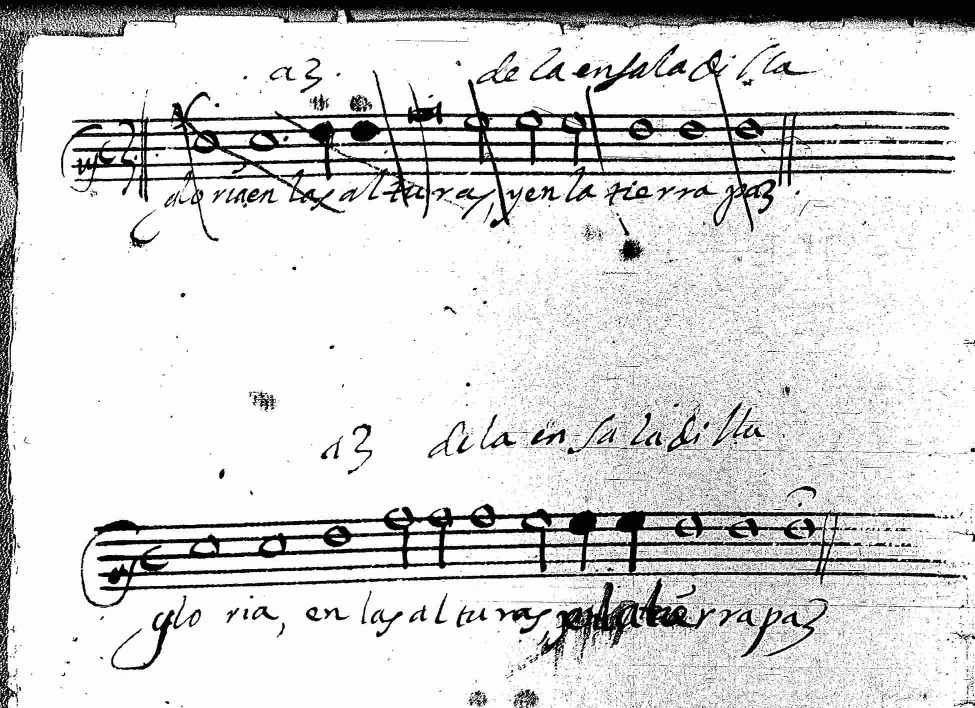 a 3. de la ensaladilla
gloria en las alturas, y en la tierra paz
a 3 de la ensaladilla
gloria, en las alturas tierra paz